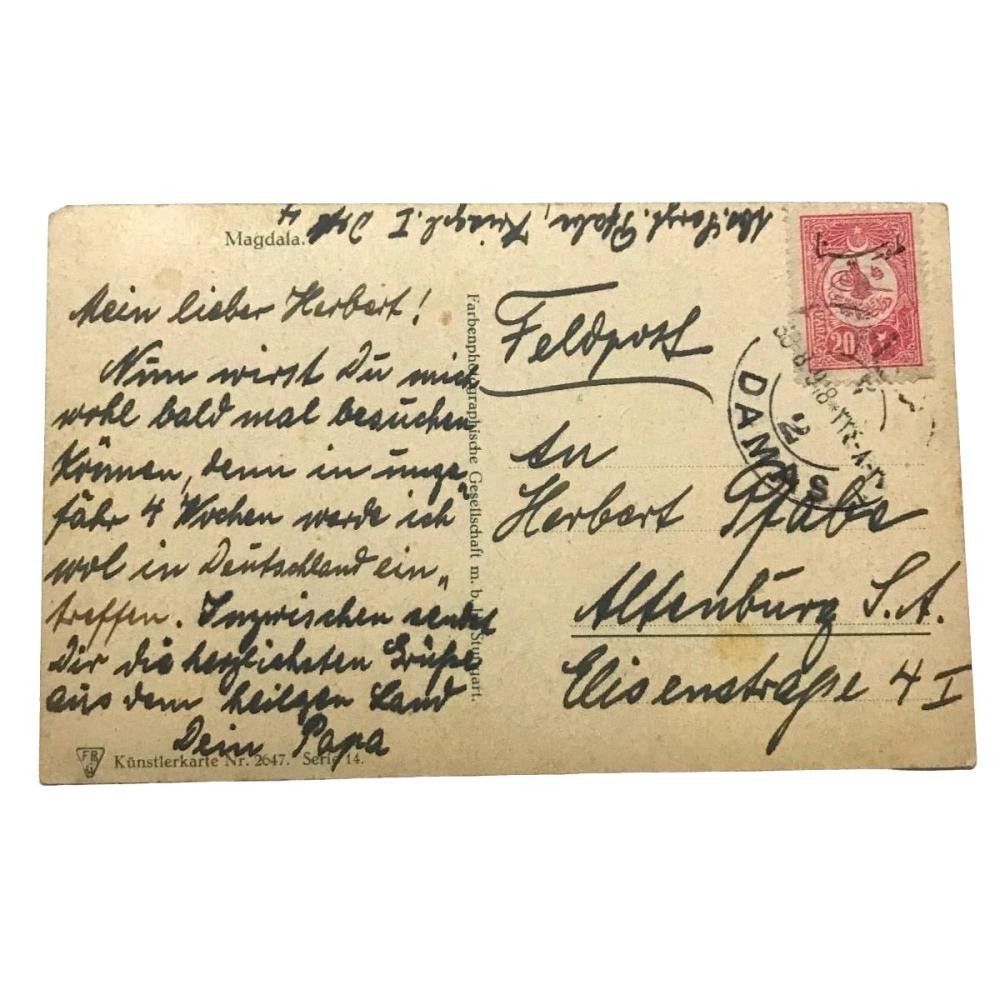 Magdala.
Mein lieber Herbert!
Nun wirst Du mich
wohl bald mal besuchen
können, denn in unge„
fähr 4 Wochen werde ich
wol in Deutschland ein„
treffen. Inzwischen sendet
Dir die herzlichsten Grüße
aus dem heilgen Land
Dein Papa
Künstlerkarte Nr. 2647. Serie 14.
Farbenphotographische Gesellschaft m. b. H. Stuttgart.
Feldpost
An
Herbert Pfabe
Altenburg S.A.
Elisenstraße 4 I
20
DAMAS
2